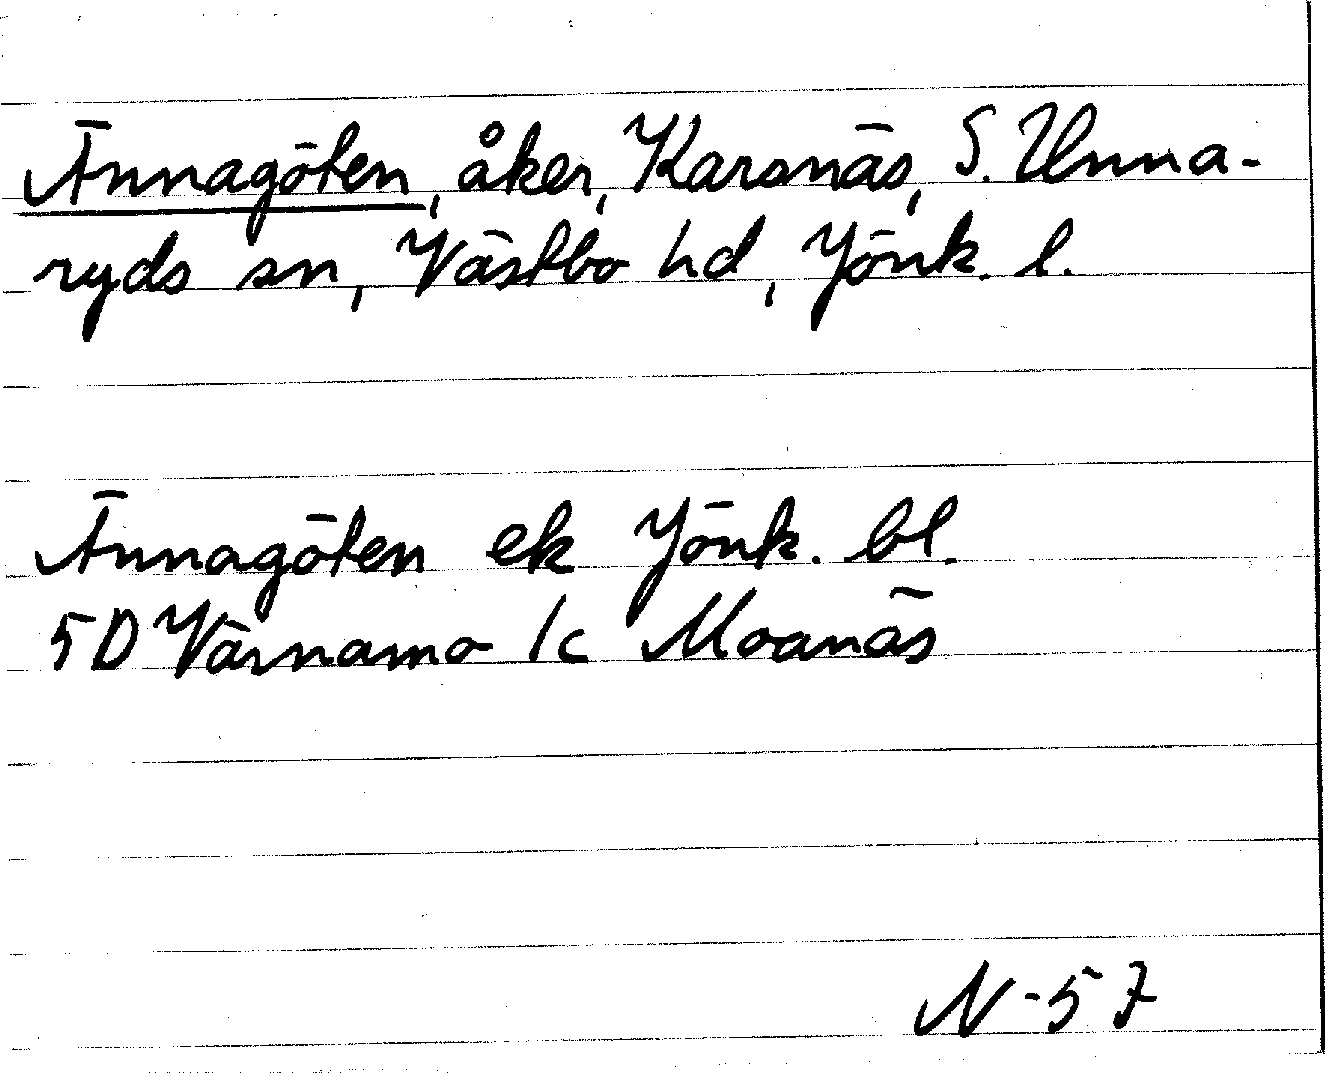 Ännagöten, åker, Karsnäs, S. Unna-
ryds sn, Västbo hd, Jönk. l.
Ännagöten ek Jönk. bl.
5D Värnamo 1c Moanäs
N-57